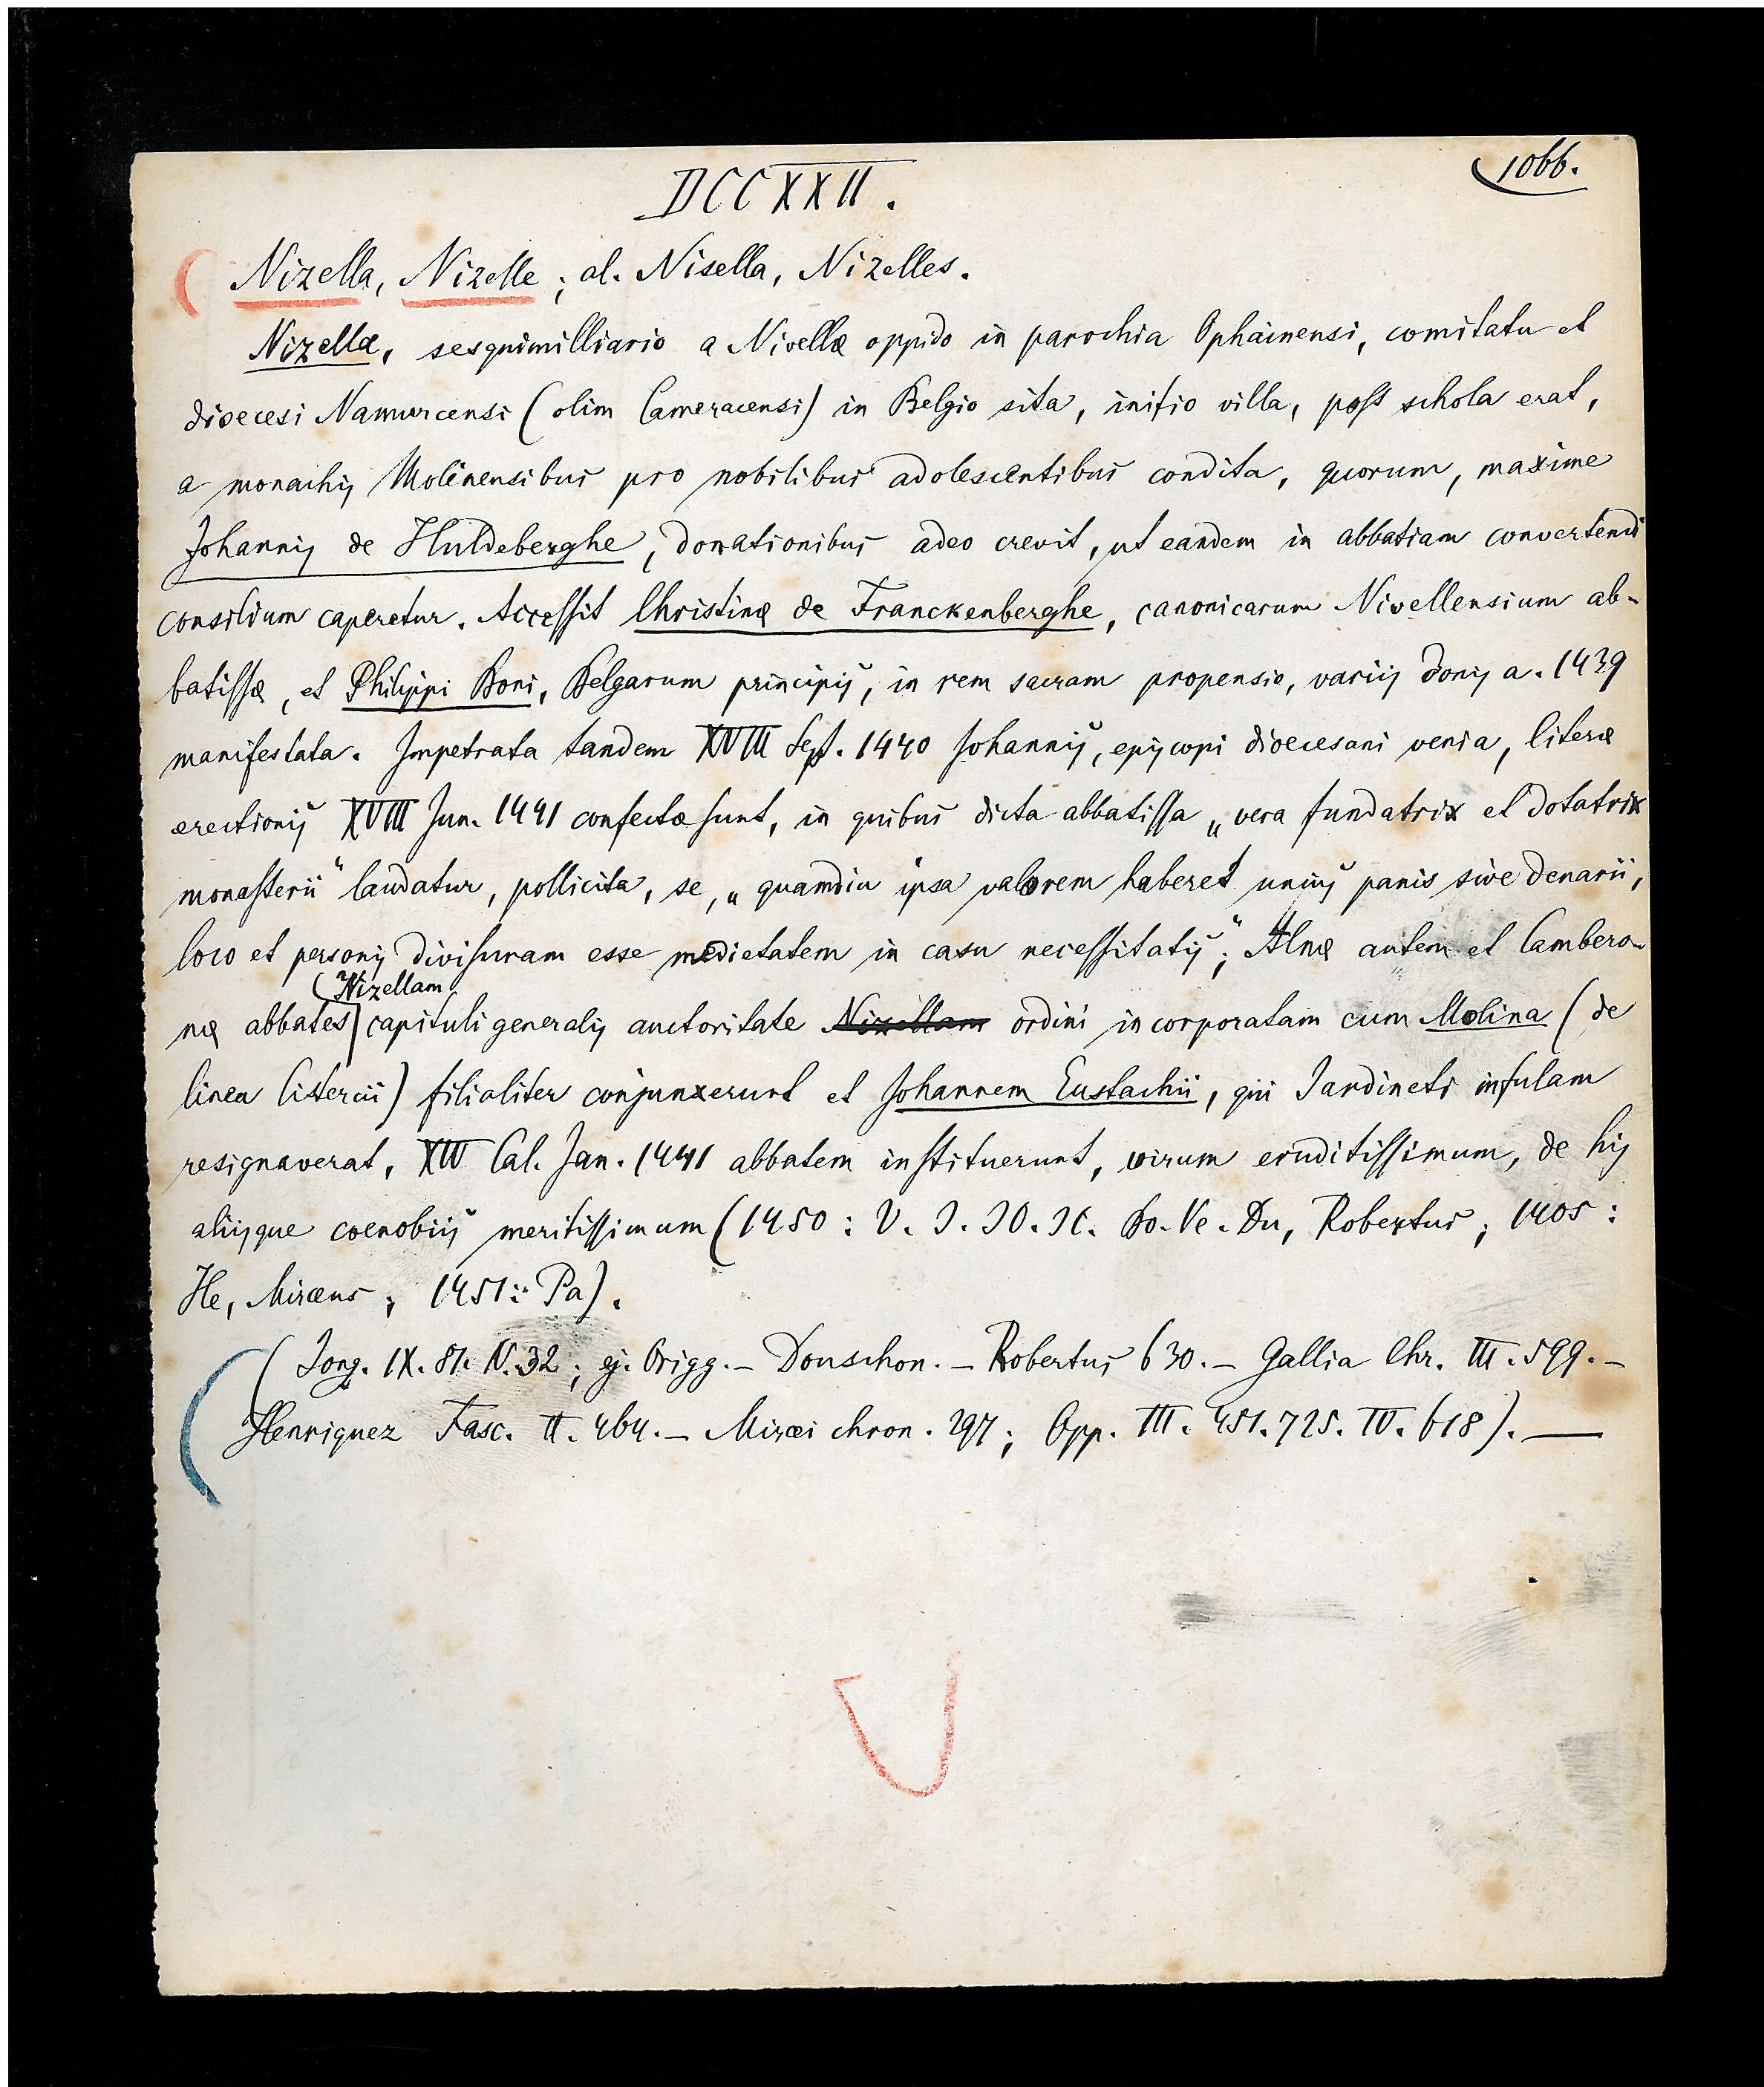 1066.
DCCXXII.
Nizella, Nizelle; al. Nisella, Nizelles.
Nizella, sesquimilliario a Nivellæ oppido in parochia Ophainensi, comitatu et
dioecesi Namurcensi (olim Cameracensi) in Belgio sita, initio villa, post schola erat,
a monachis Molinensibus pro nobilibus adolescentibus condita, quorum, maxime
Johannis de Huldeberghe, donationibus adeo crevit, ut eandem in abbatiam convertendi
consilium caperetur. Accessit Christinæ de Franckenberghe, canonicarum Nivellensium ab-
batissæ, et Philippi Boni, Belgarum principis, in rem sacram propensio, variis donis a. 1439
manifestata. Impetrata tandem XVIII Sept. 1440 Johannis, episcopi dioecesani venia, literæ
erectionis XVIII Jun. 1441 confectæ sunt, in quibus dicta abbatissa „vera fundatrix et dotatrix
monasterii“ laudatur, pollicita, se, „quamdiu ipsa valorem haberet unius panis sive denarii,
loco et personis divisuram esse medietatem in casu necessitatis“; Alnæ autem et Cambero-
næ abbates Nizellam capituli generalis auctoritate Nizellam ordini incorporatam cum Molina (de
linea Cistercii) filialiter conjunxerunt et Johannem Eustachii, qui Jardineti infulam
resignaverat, XIV Cal. Jan. 1441 abbatem instituerunt, virum eruditissimum, de his
aliisque coenobiis meritissimum (1450: V. J. JO. H. Bo. Ve. Du, Robertus; 1405:
He, Miræus; 1451: Pa).
(Jong. IX. 81. N. 32; ej. Origg. – Donschon. – Robertus 630. – Gallia Chr. III. 599. –
Henriquez Fasc. II. 464. – Miræi chron. 297; Opp. III. 451. 725. IV. 618). —